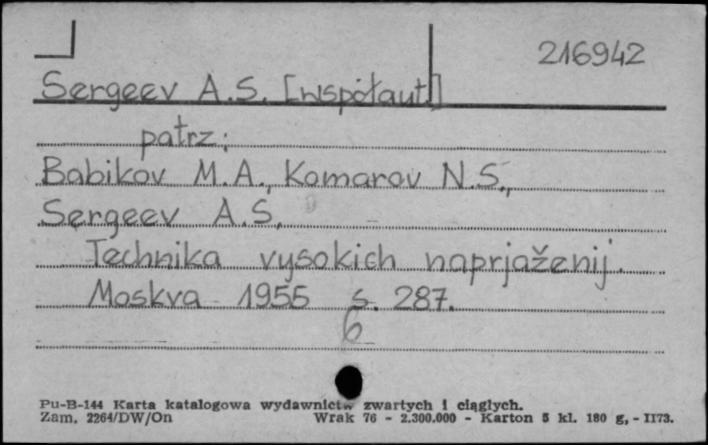 216942
Sergeev A.S. [współaut.]
patrz:
Babikov M.A., Komarov N.S.,
Sergeev A.S.
Technika vysokich naprjaženij.
Moskva 1955 s. 287.
6
Pu-B-144 Karta katalogowa wydawnictw zwartych i ciągłych.
Zam. 2264/DW/On Wrak 76 - 2.300.000 - Karton 5 kl. 180 g, - II73.